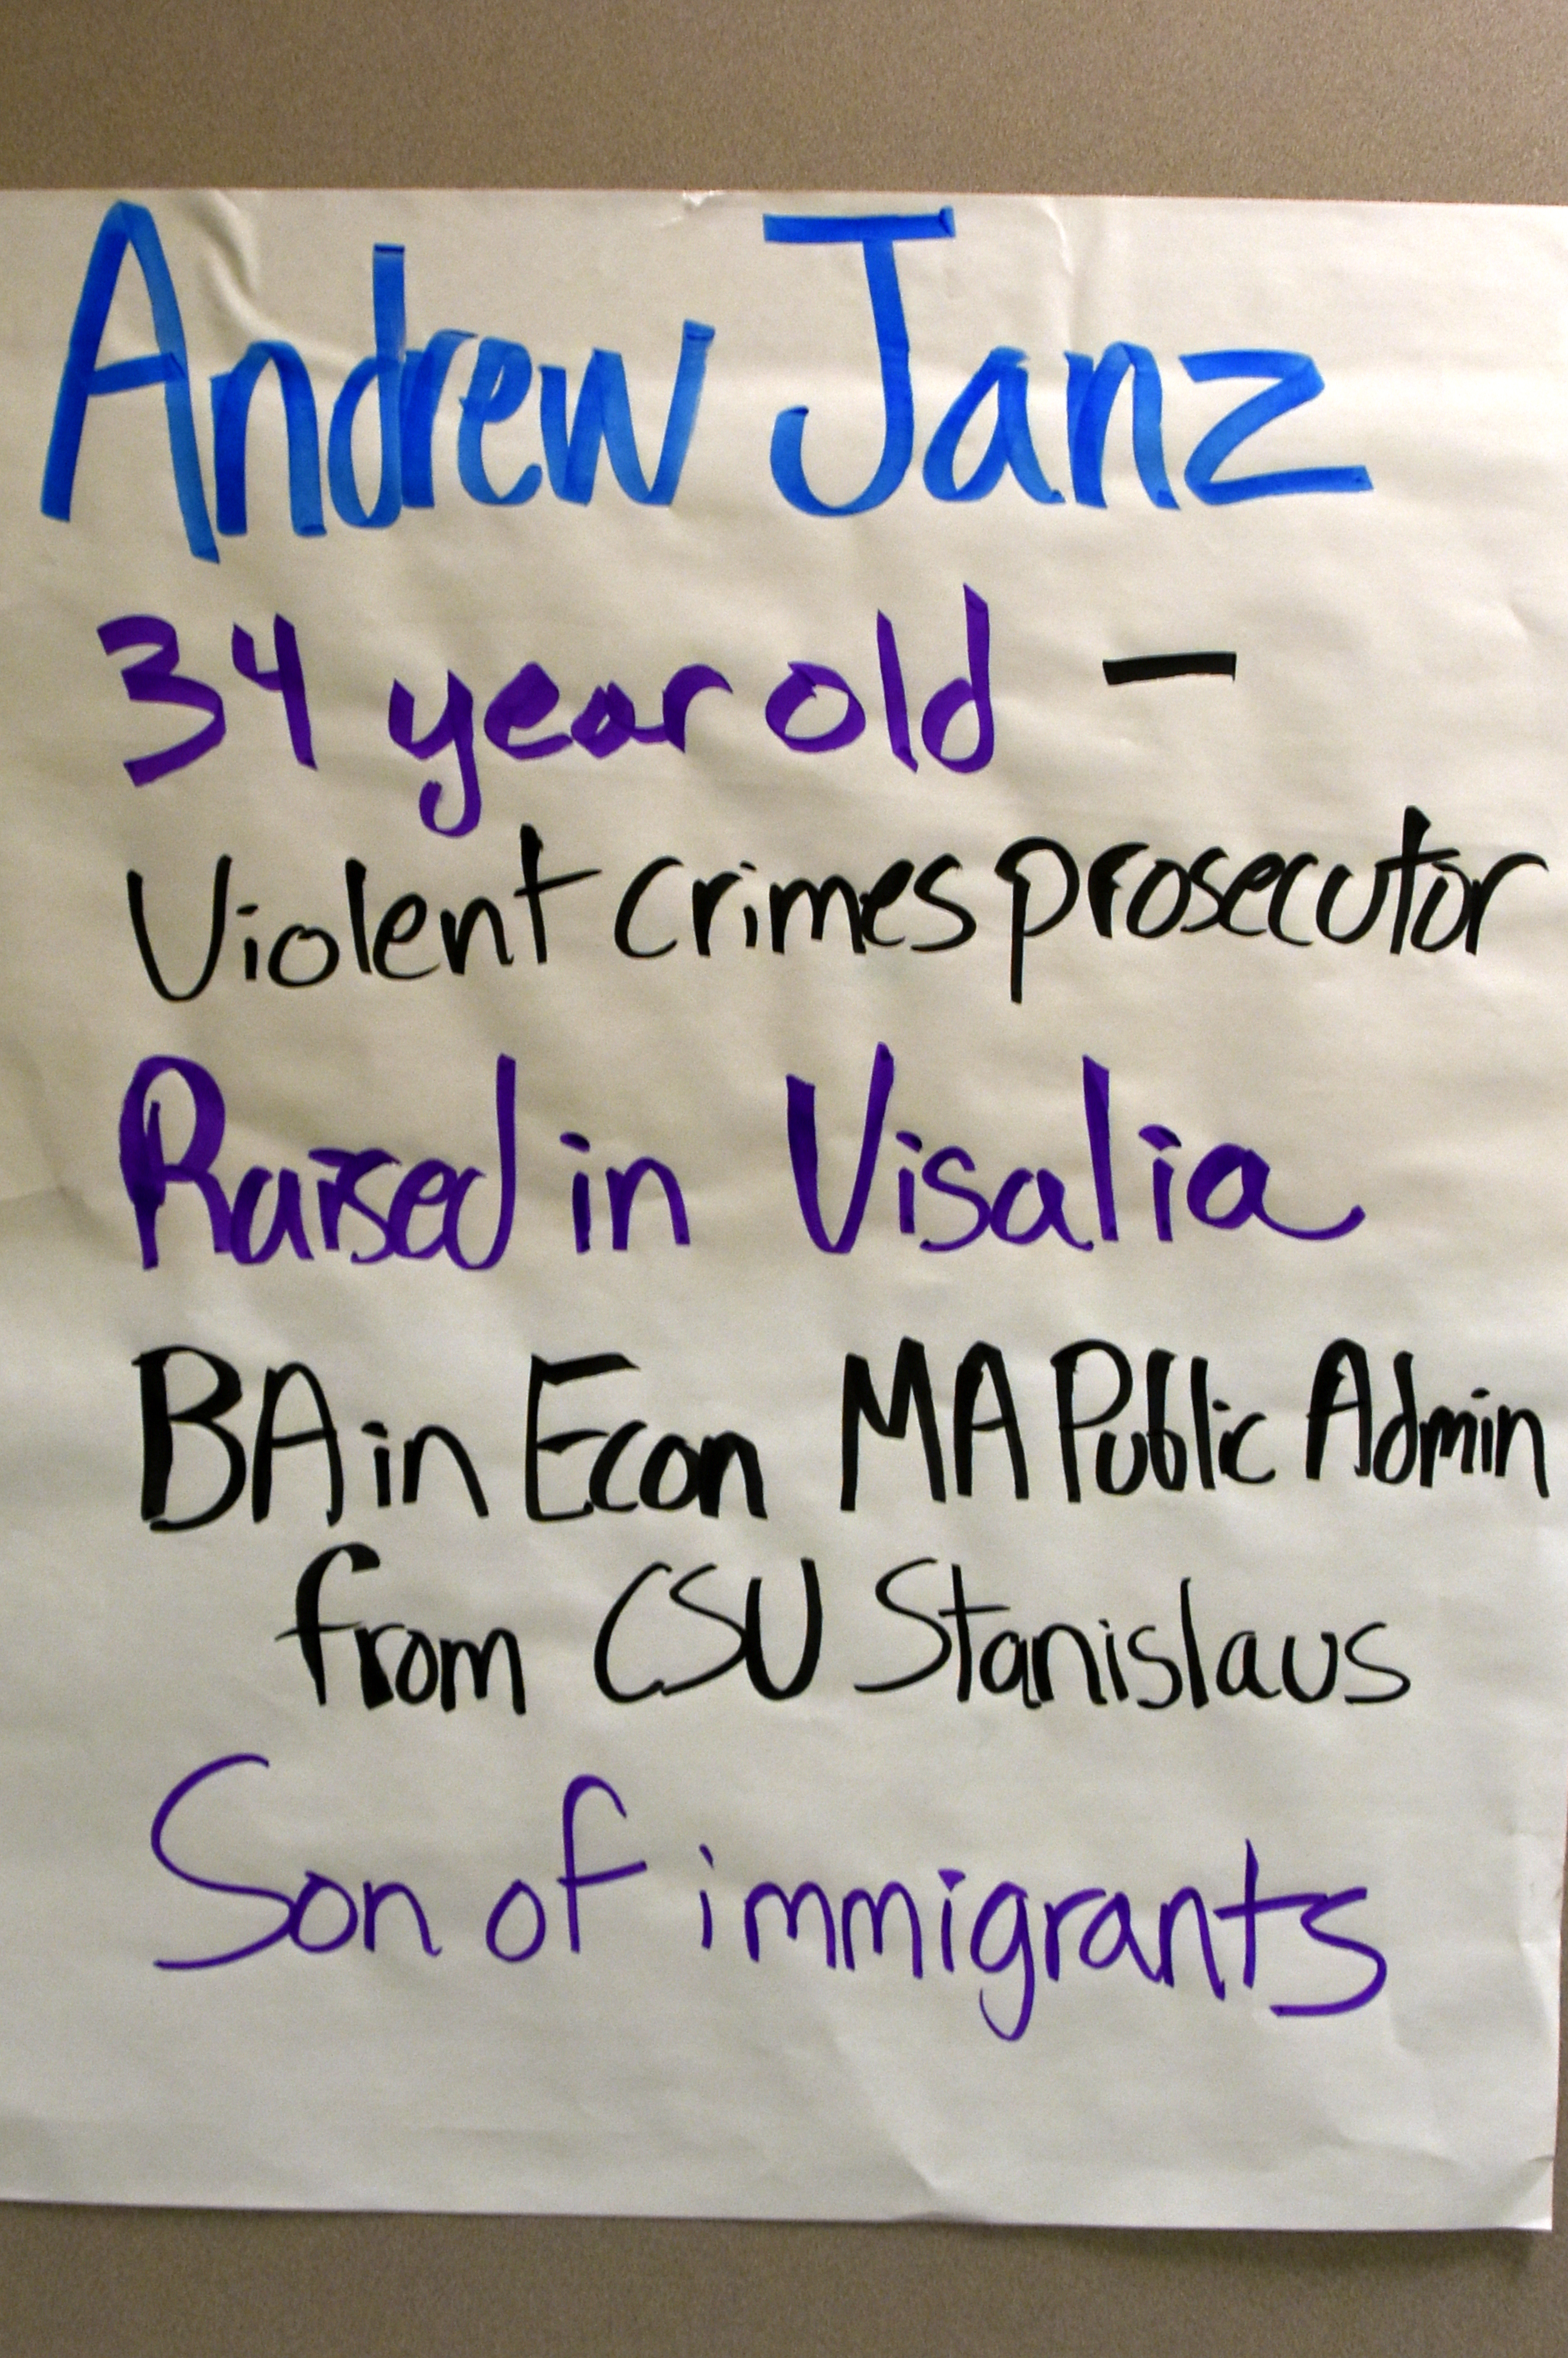 Andrew Janz
34 year old –
Violent crimes prosecutor
Raised in Visalia
BA in Econ MA Public Admin
from CSU Stanislaus
Son of immigrants